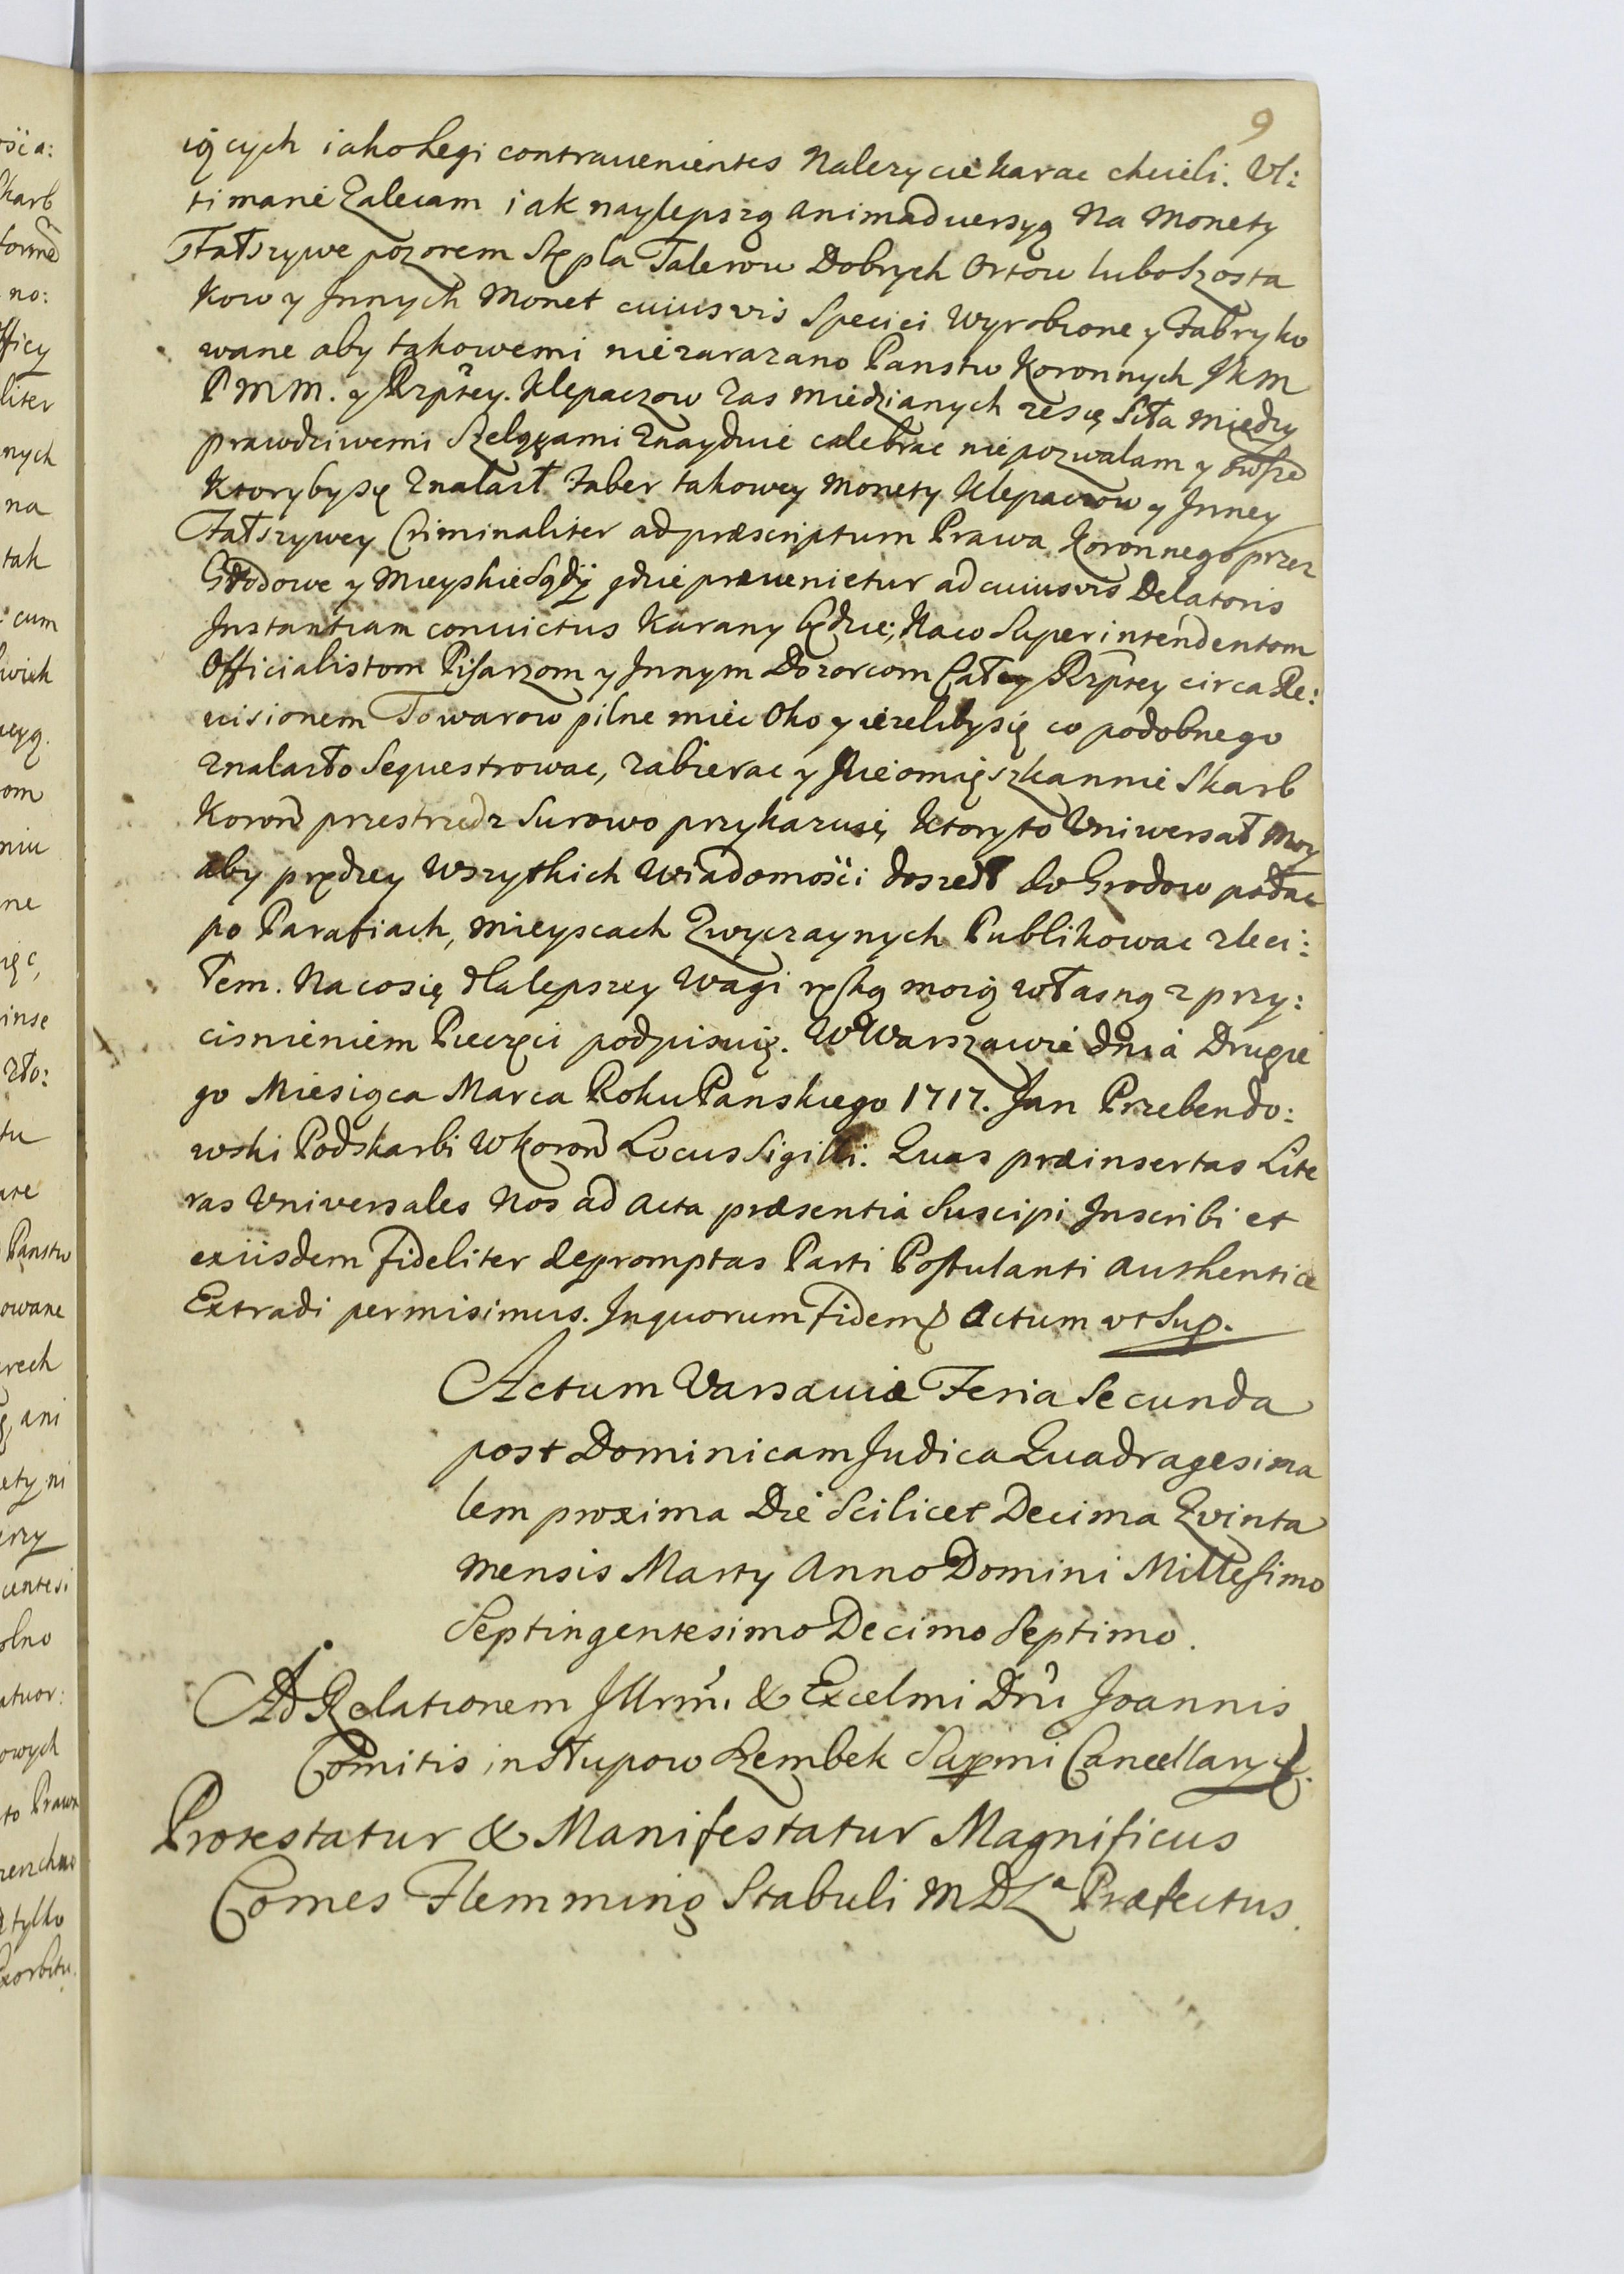 9
iących iako Legi contravenientes Nalezycie karac chcieli. Vl:
timanè Zalecam iak naylepszą animadwersyą Na Monety
Fałszywe pozorem Stępla Talerow Dobrych Ortow lubo Szosta
kow y Jnnych Monet cuiusvis Speciei Wyrobione y Fabryko
wane aby takowemi niezarazano Panstw Koronnych JKM
PMM. y Rzptey. Klepaczow zas miedzianych ze się siła między
prawdziwemi Szelągami Znayduie calebrac niepozwalam y owsze
Ktoryby się Znalazł Faber takowey Monety Klepaczow y Jnney
Fałszywey Criminaliter ad præscriptum Prawa Koronnego przez
Grodowe y Mieyskie Sądy gdzie prævenietur ad cuiusvis Delatoris
Jnstantiam convictus Karany będzie; Naco Superintendentom
Officialistom Pisarzom y Jnnym Dozorcom Całey Rzptey circa Re:
visionem Towarow pilne miec Oko y iezeliby się co podobnego
znalazło Sequestrowac, zabierac y Nieomięszkannie Skarb
Koron przestrzedz Surowo przykazuię Ktory to Vniwersał Moy
aby prędzey Wszytkich Wiadomości doszedł do Grodow podac
po Parafiach, mieyscach Zwyczaynych Publikowac zleci:
łem. Na co się dla lepszey Wagi ręką moią własną z przy:
cisnieniem Pieczęci podpisuię. W Warszawie dnia Drugie
go Miesiąca Marca Roku Panskiego 1717. Jan Przebendo:
wski Podskarbi W Koron Locus Sigilli. Quas præinsertas Lite
ras Vniversales Nos ad Acta præsentia Suscipi Jnscribi et
exiisdem fideliter depromptas Parti Postulanti authenticè
Extradi permisimus. Jn quorum Fidem Actum vt Sup.
Actum Varsaviæ Feria Secunda
post Dominicam Judica Quadragesima
lem proxima Die Scilicet Decima Qvinta
mensis Marty Anno Domini Millesimo
Septingentesimo Decimo Septimo.
Ad Relationem Jllrmi & Excelmi Dni Joannis
Comitis in Słupow Szembek Supmi Cancellary
Protestatur & Manifestatur Magnificus
Comes Flemming Stabuli MDL Præfectus.